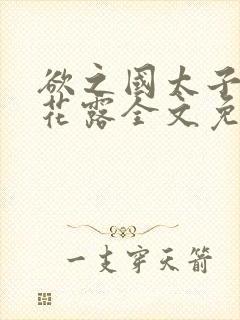 欲之國太子
花露全文免
一支穿天箭